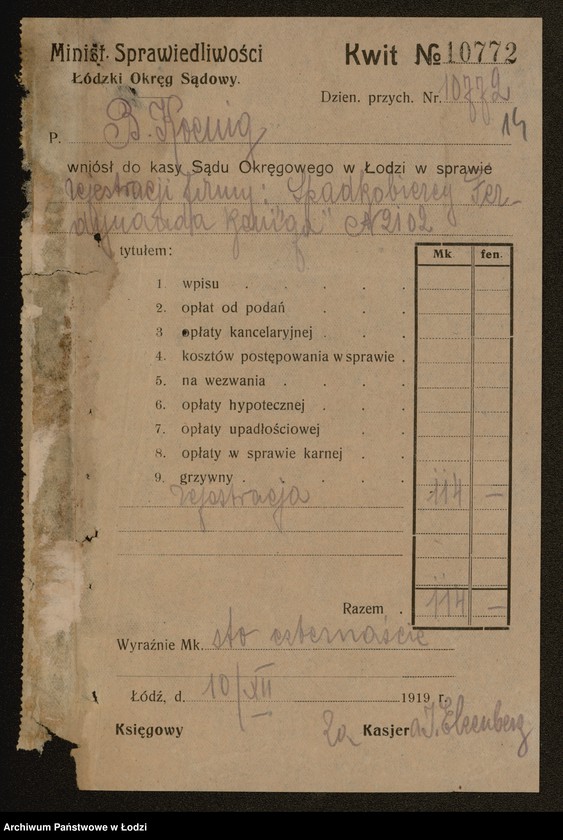 Minist. Sprawiedliwości
Łódzki Okręg Sądowy.
Kwit № 10772
Dzien. przych. Nr. 10772
14
P. B. Koenig
wniósł do kasy Sądu Okręgowego w Łodzi w sprawie
rejestracji firmy: "Spadkobiercy Fer-
dynanda König" № 2102
tytułem:
Mk. fen.
1. wpisu
2. opłat od podań
3 opłaty kancelaryjnej
4. kosztów postępowania w sprawie
5. na wezwania
6. opłaty hypotecznej
7. opłaty upadłościowej
8. opłaty w sprawie karnej
9. grzywny
rejestracja 114 —
Razem 114 —
Wyraźnie Mk. sto czternaście
Łódź, d. 10/XII 1919 r.
Księgowy za Kasjera J. Elzenberg
Archiwum Państwowe w Łodzi